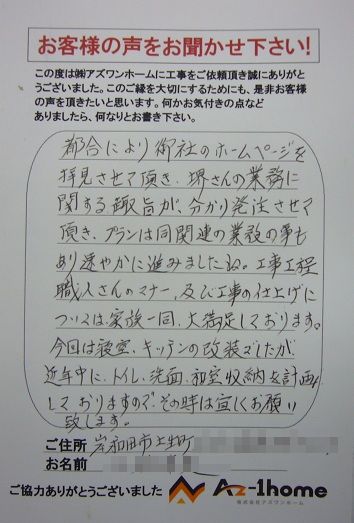 お客様の声をお聞かせ下さい!
この度は㈱アズワンホームに工事をご依頼頂き誠にありがと
うございました。このご縁を大切にするためにも、是非お客様
の声を頂きたいと思います。何かお気付きの点など
ありましたら、何なりとお書き下さい。
都合により御社のホームページを
拝見させて頂き、堺さんの業務に
関する趣旨が、分かり発注させて
頂き、プランは同関連の業設の事も
あり速やかに進みましたね。工事工程
職人さんのマナー、及び工事の仕上げに
ついては、家族一同、大満足しております。
今回は寝室、キッチンの改装でしたが
近年中に、トイレ、洗面、和室収納を計画
しておりますので、その時は宜しくお願い
致します。
ご住所 岸和田市土生町
お名前
ご協力ありがとうございました Az-1home
株式会社アズワンホーム